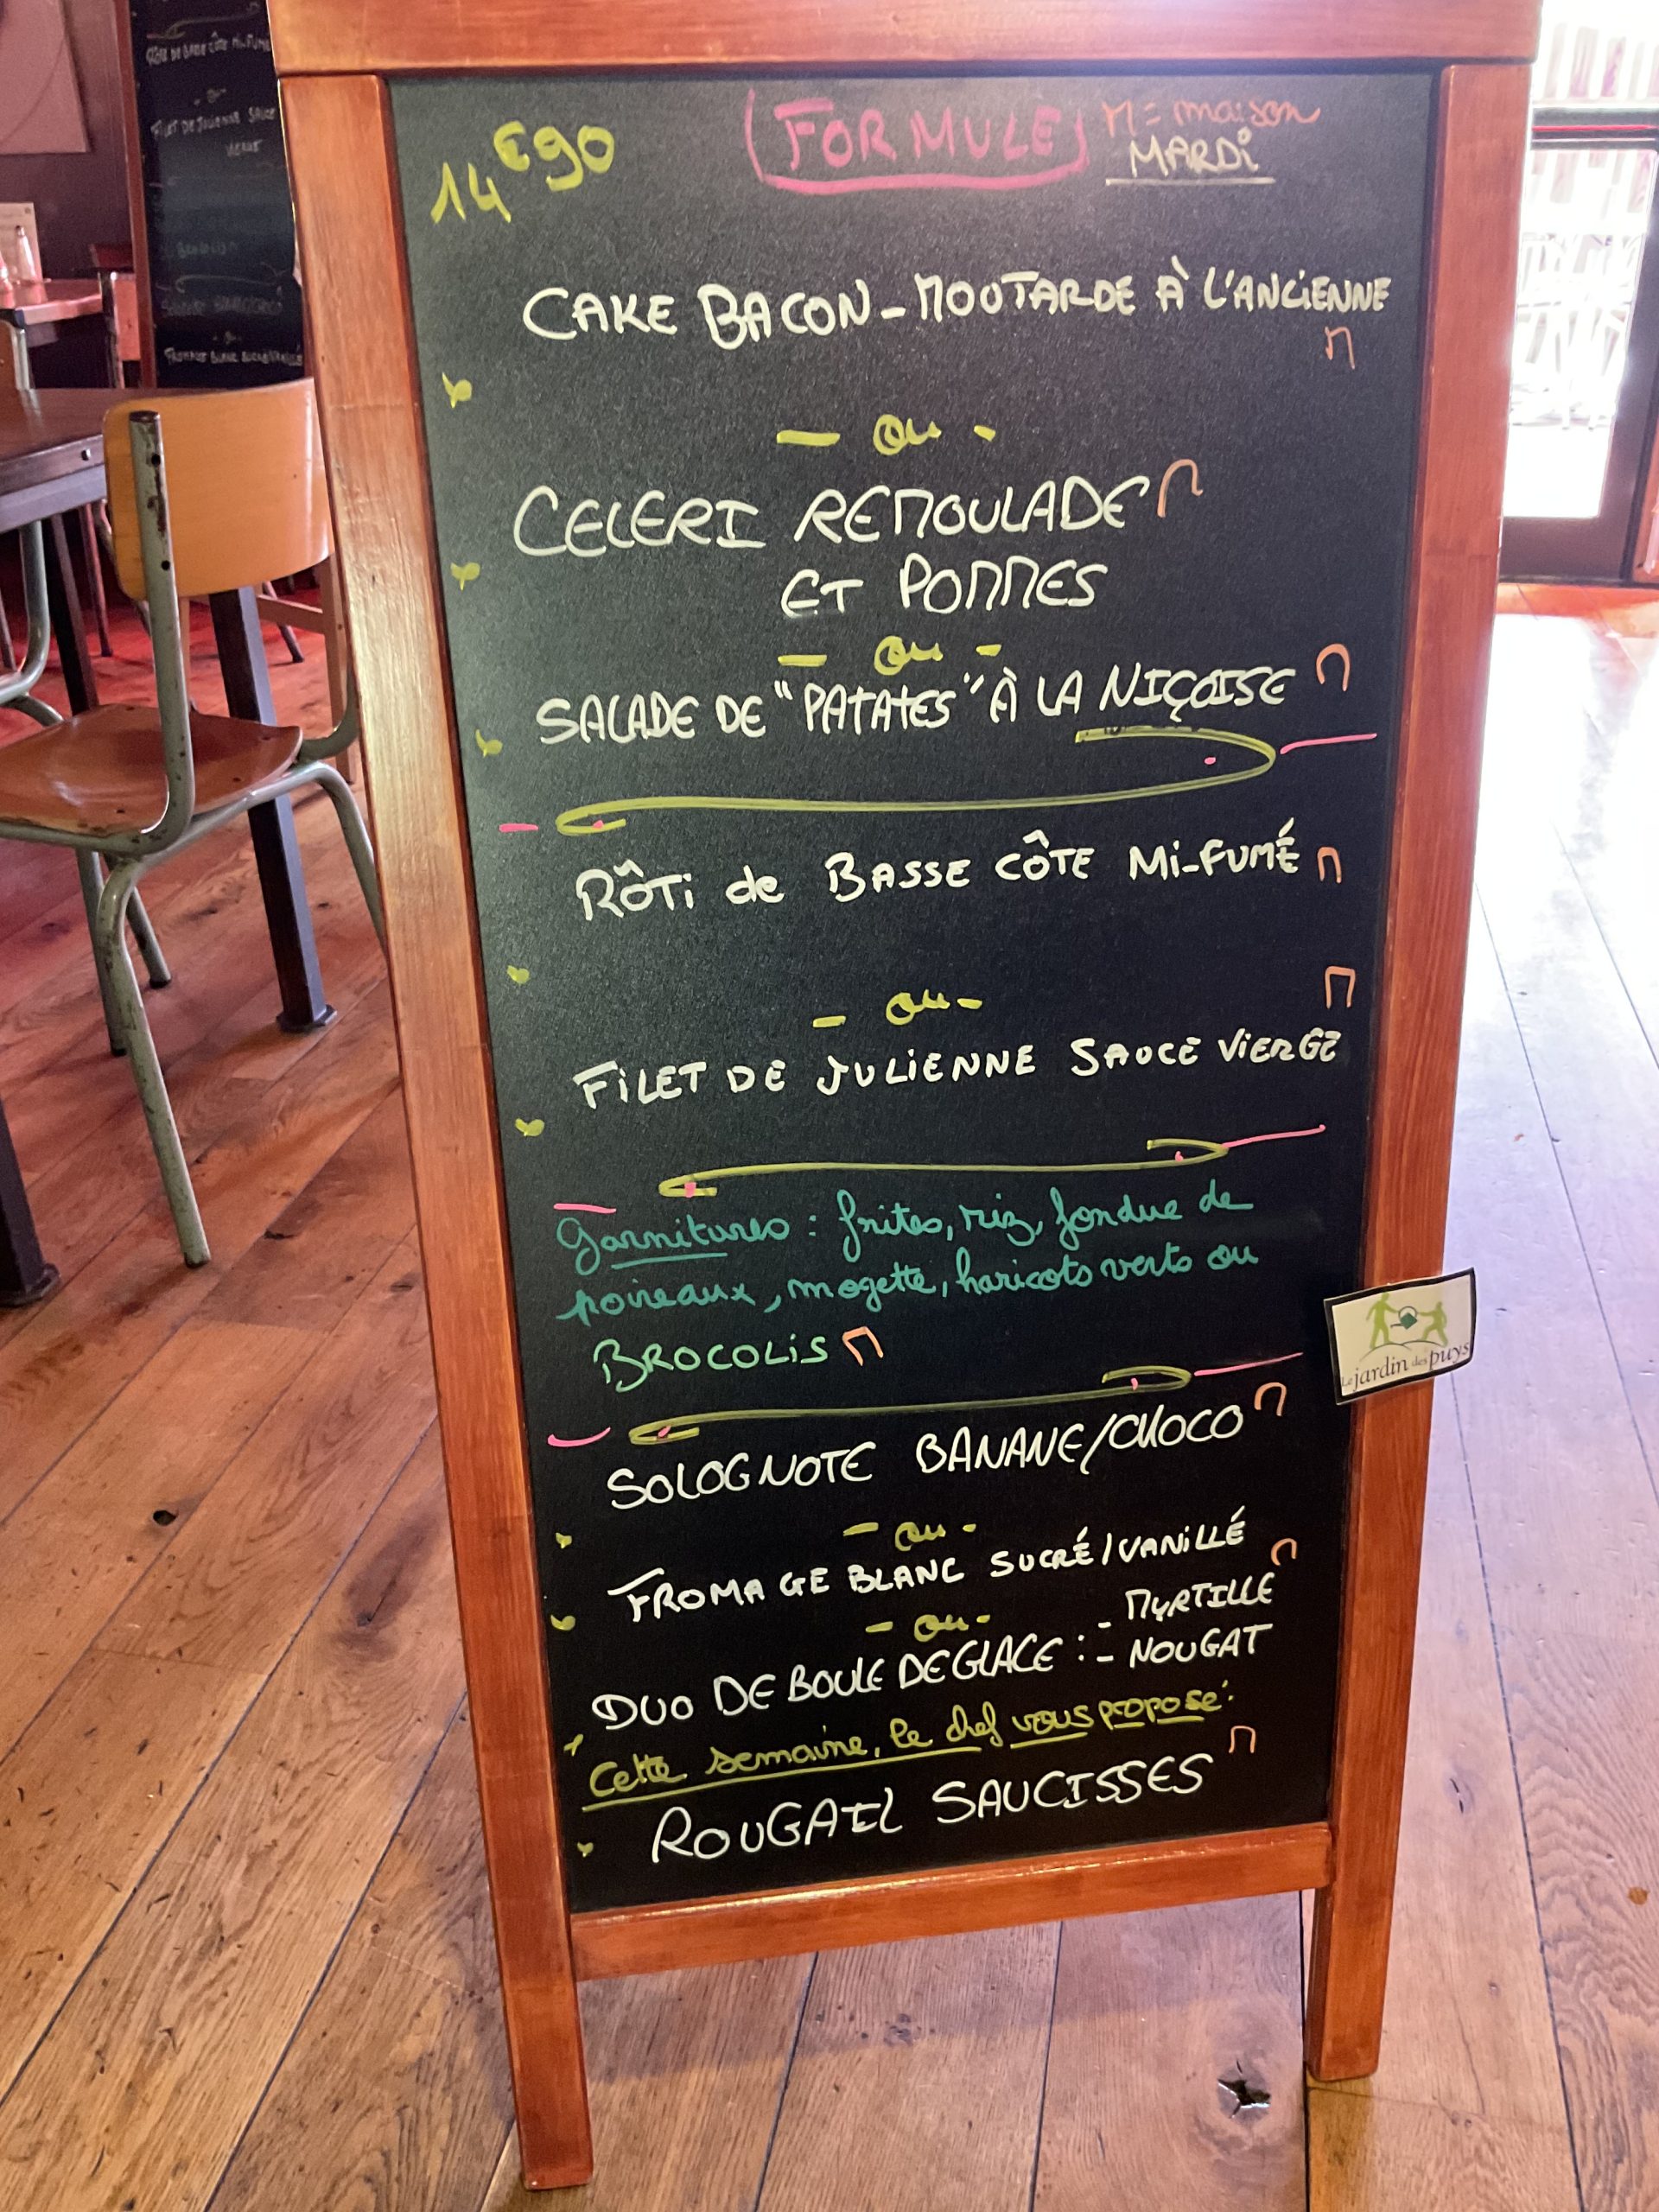 14€90
FORMULE
M = maison
MARDI
CAKE BACON-MOUTARDE À L'ANCIENNE
M
- ou -
CELERI REMOULADE M
ET POMMES
- ou -
SALADE DE "PATATES" À LA NIÇOISE M
RÔTI de BASSE CÔTE MI-FUMÉ M
- ou -
M
FILET DE JULIENNE SAUCE VIERGE
Garnitures : frites, riz, fondue de
poireaux, mogette, haricots verts ou
BROCOLIS M
SOLOGNOTE BANANE/CHOCO M
- ou -
FROMAGE BLANC SUCRÉ/VANILLÉ M
- ou -
DUO DE BOULE DE GLACE : - MYRTILLE
- NOUGAT
Cette semaine, le chef vous propose :
ROUGAIL SAUCISSES M
Le jardin des puys
RÔTI DE BASSE CÔTE MI-FUMÉ
- ou -
FILET DE JULIENNE SAUCE
VIERGE
BROCOLIS M
SOLOGNOTE BANANE/CHOCO
- ou -
FROMAGE BLANC SUCRÉ/VANILLÉ